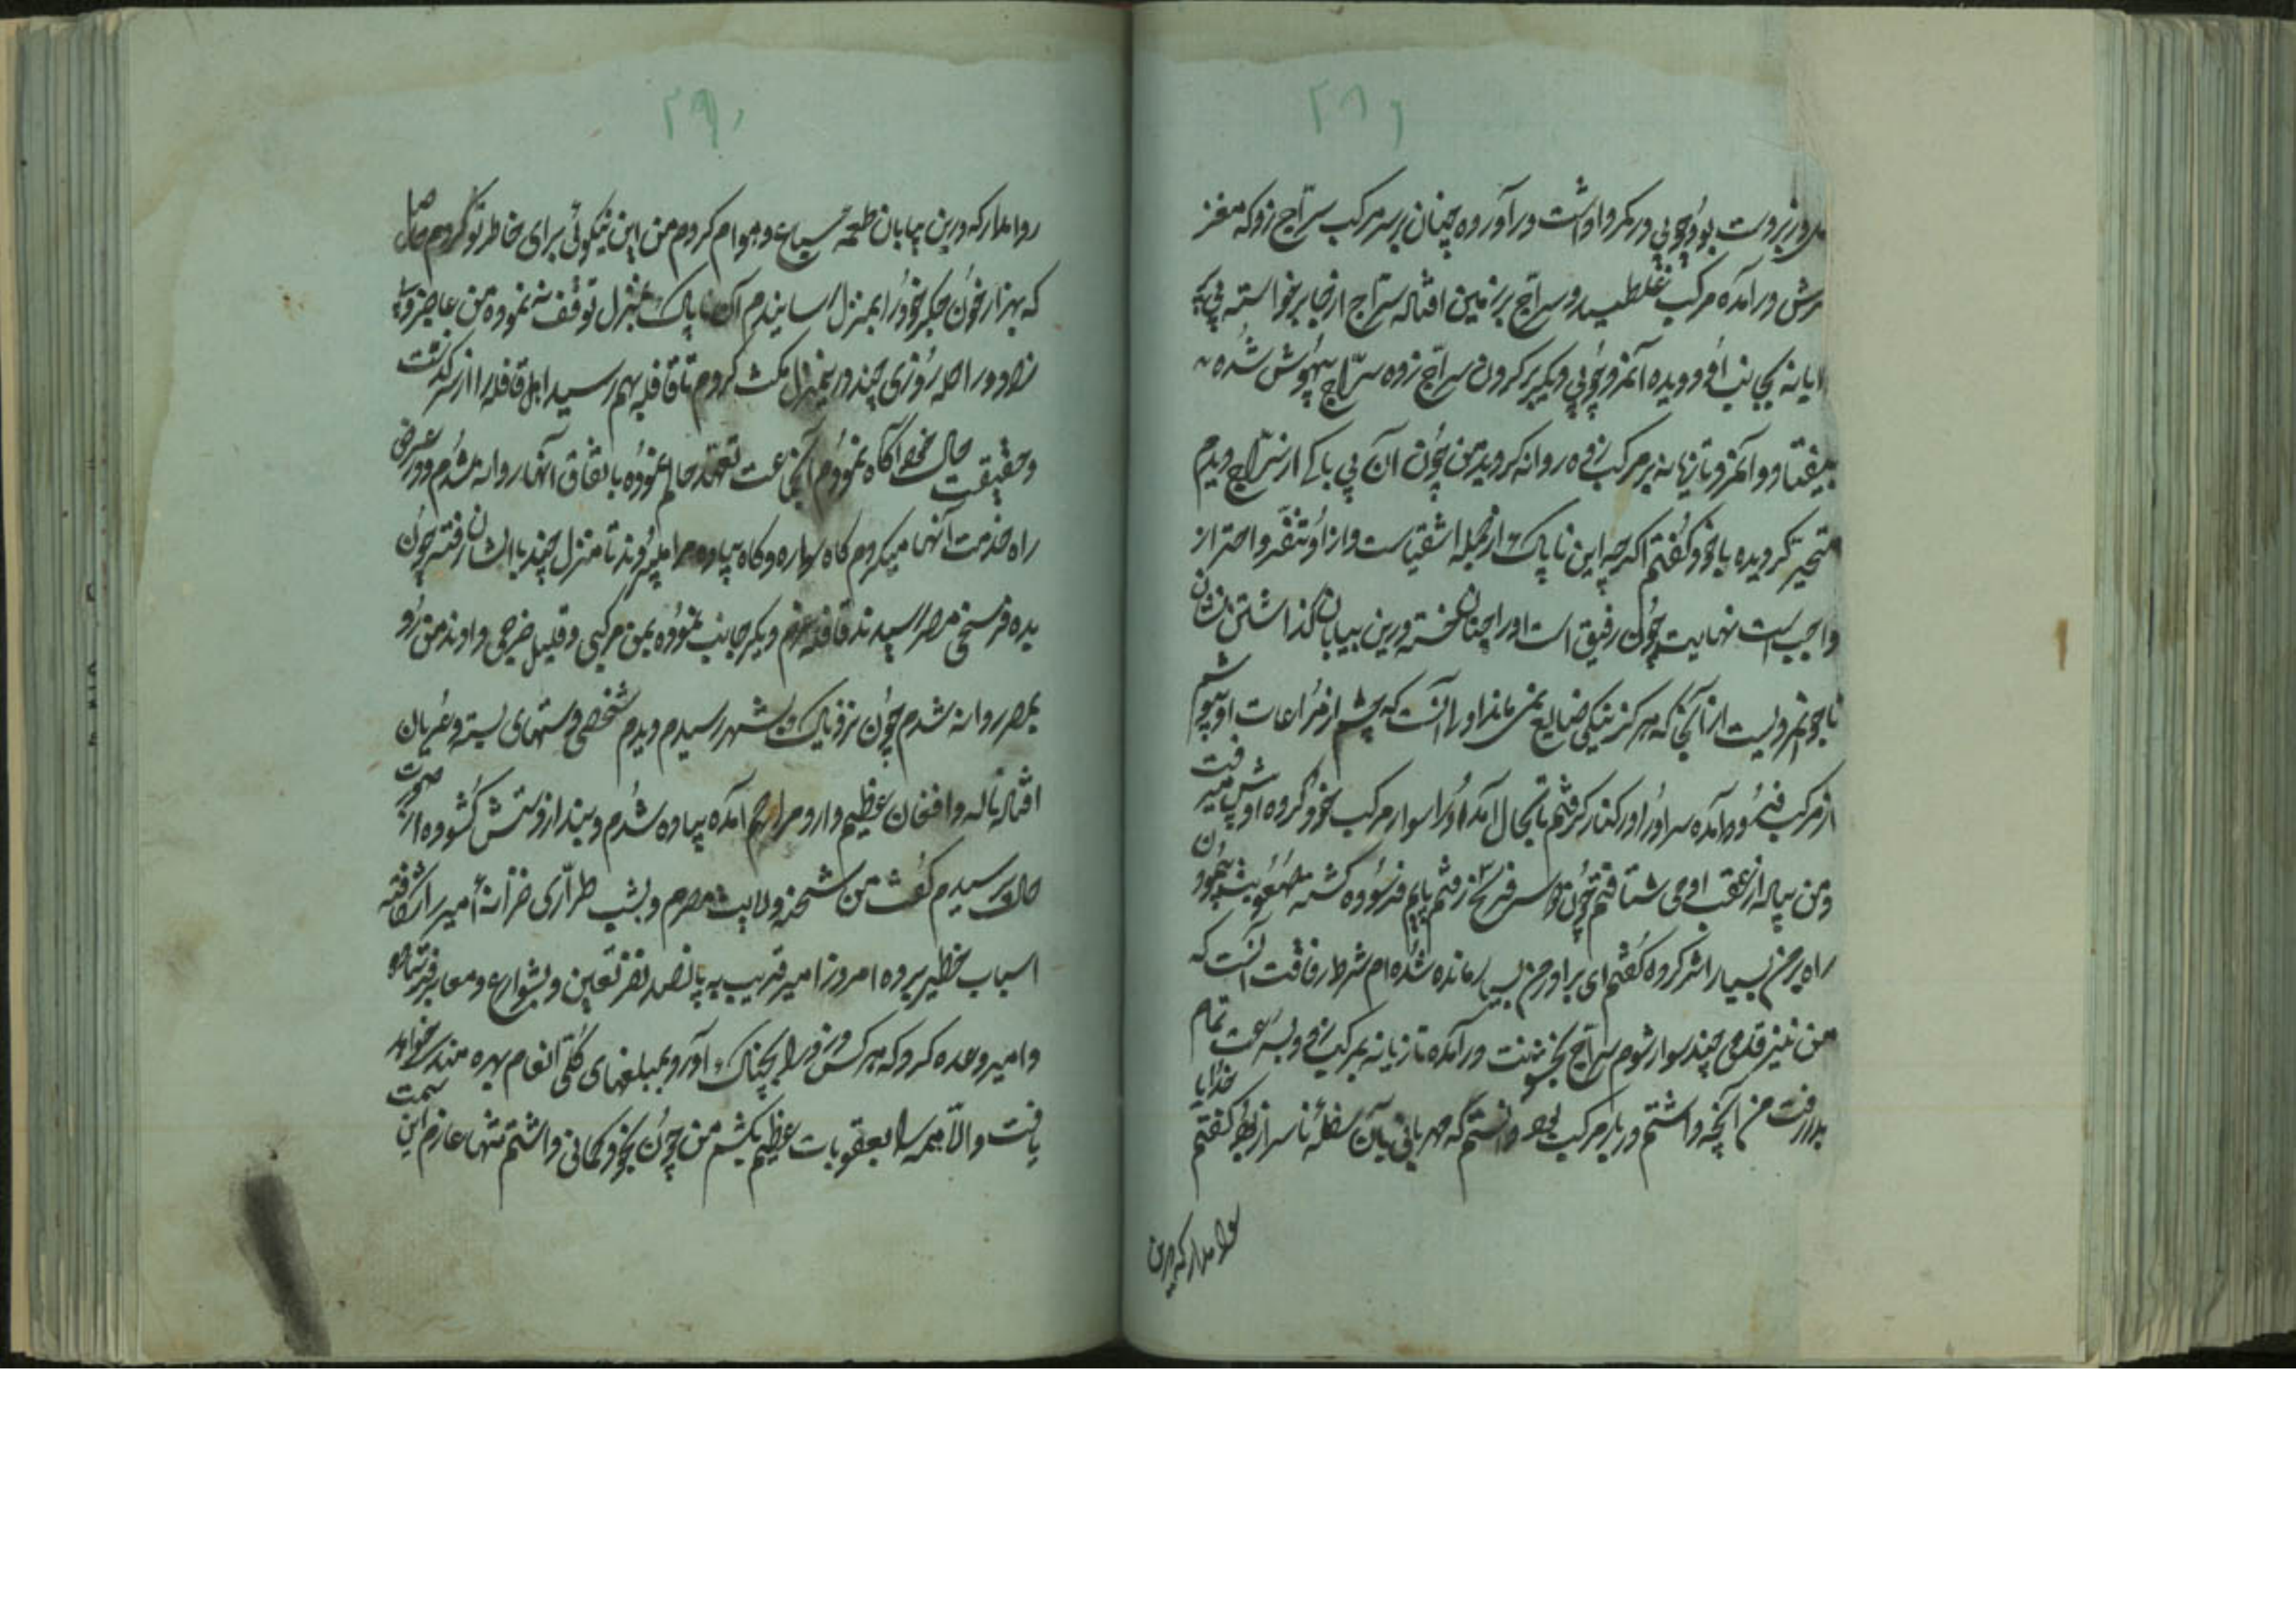 ۲۸۹
بود چوبی در کمر او داشت در آورده چنان بر سر مرکب سراج زد که مغز
سرش در آمده مرکب غلطید و سراج بر زمین افتاد سراج از جا برخواسته
بجانب او دویده آنمرد چوبی دیگر بر کردن سراج زده سراج بیهوش شده
بیفتاد و آنمرد تازیانه بر مرکب زده روانه کردید من چون آن بی باکی از سراج دیدم
متحیر کردیده با خود کفتم اکرچه این ناپاک از جمله اشقیاست و از او تنفر و احتراز
واجب است نهایت چون رفیق است او را چنان خسته درین بیابان کذاشتن نشان
ناجوانمردیست از آنجا که هرکز نیکی ضایع نمی ماند اولا آنست که چشم از مراعات او نپوشم
از مرکب فرود آمده سر او را در کنار کرفتم تا بحال آمد او را سوار مرکب خود کرده او پیش میرفت
و من پیاده از عقب او می شتافتم چون دو سه فرسخ رفتم پایم فرسوده کشته صعوبت پیمودن
راه بر من بسیار اثر کرده کفتم ای برادر من بسیار مانده شده ام شرط رفاقت آنست که
من نیز قدمی چند سوار شوم سراج بخشونت در آمده تازیانه بمرکب زد و بسرعت تمام
بدر رفت من آنچه داشتم در بار مرکب بود دانستم که مهربانی بآن سفله ناسزا بود کفتم خدایا
روا مدار که درین
۲۹۰
روا مدار که درین بیابان طعمه سباع و هوام کردم من این نیکوئی برای خاطر تو کردم حاصل
که بهزار خون جکر خود را بمنزل رسانیدم آن ناپاک بمنزل توقف ننموده من عاجز و بی
زاد و راحله روزی چند در آنمنزل مکث کردم تا قافله بهم رسید اهل قافله را از سرکذشت
و حقیقت حال خود آکاه نمودم آنجماعت تعهد حالم نموده باتفاق آنها روانه شدم و در عرض
راه خدمت آنها میکردم کاه سواره و کاه پیاده مرا میبردند تا منزل چند با ایشان رفته چون
بده فرسخی مصر رسیدند قافله عزم دیکر جانب نموده بمن مرکبی و قلیل خرجی دادند من رو
بمصر روانه شدم چون نزدیک بشهر رسیدم دیدم شخصی دستهای بسته و عریان
افتاده ناله و افغان عظیم دارد مرا رحم آمده پیاده شدم و بند از دستش کشوده از صورت
حال پرسیدم کفت من شحنه ولایت مصرم دیشب طراری خزانه امیر را شکافته
اسباب خطیر برده امروز امیر قریب به پانصد نفر تعیین و بشوارع و معابر فرستاده
و امیر وعده کرد که هرکس دزد را بچنک آورد بمبلغهای کلی انعام بهره مند خواهد
یافت و الا همه را بعقوبات عظیم بکشم من چون بخود کمانی داشتم تنها عازم این سمت